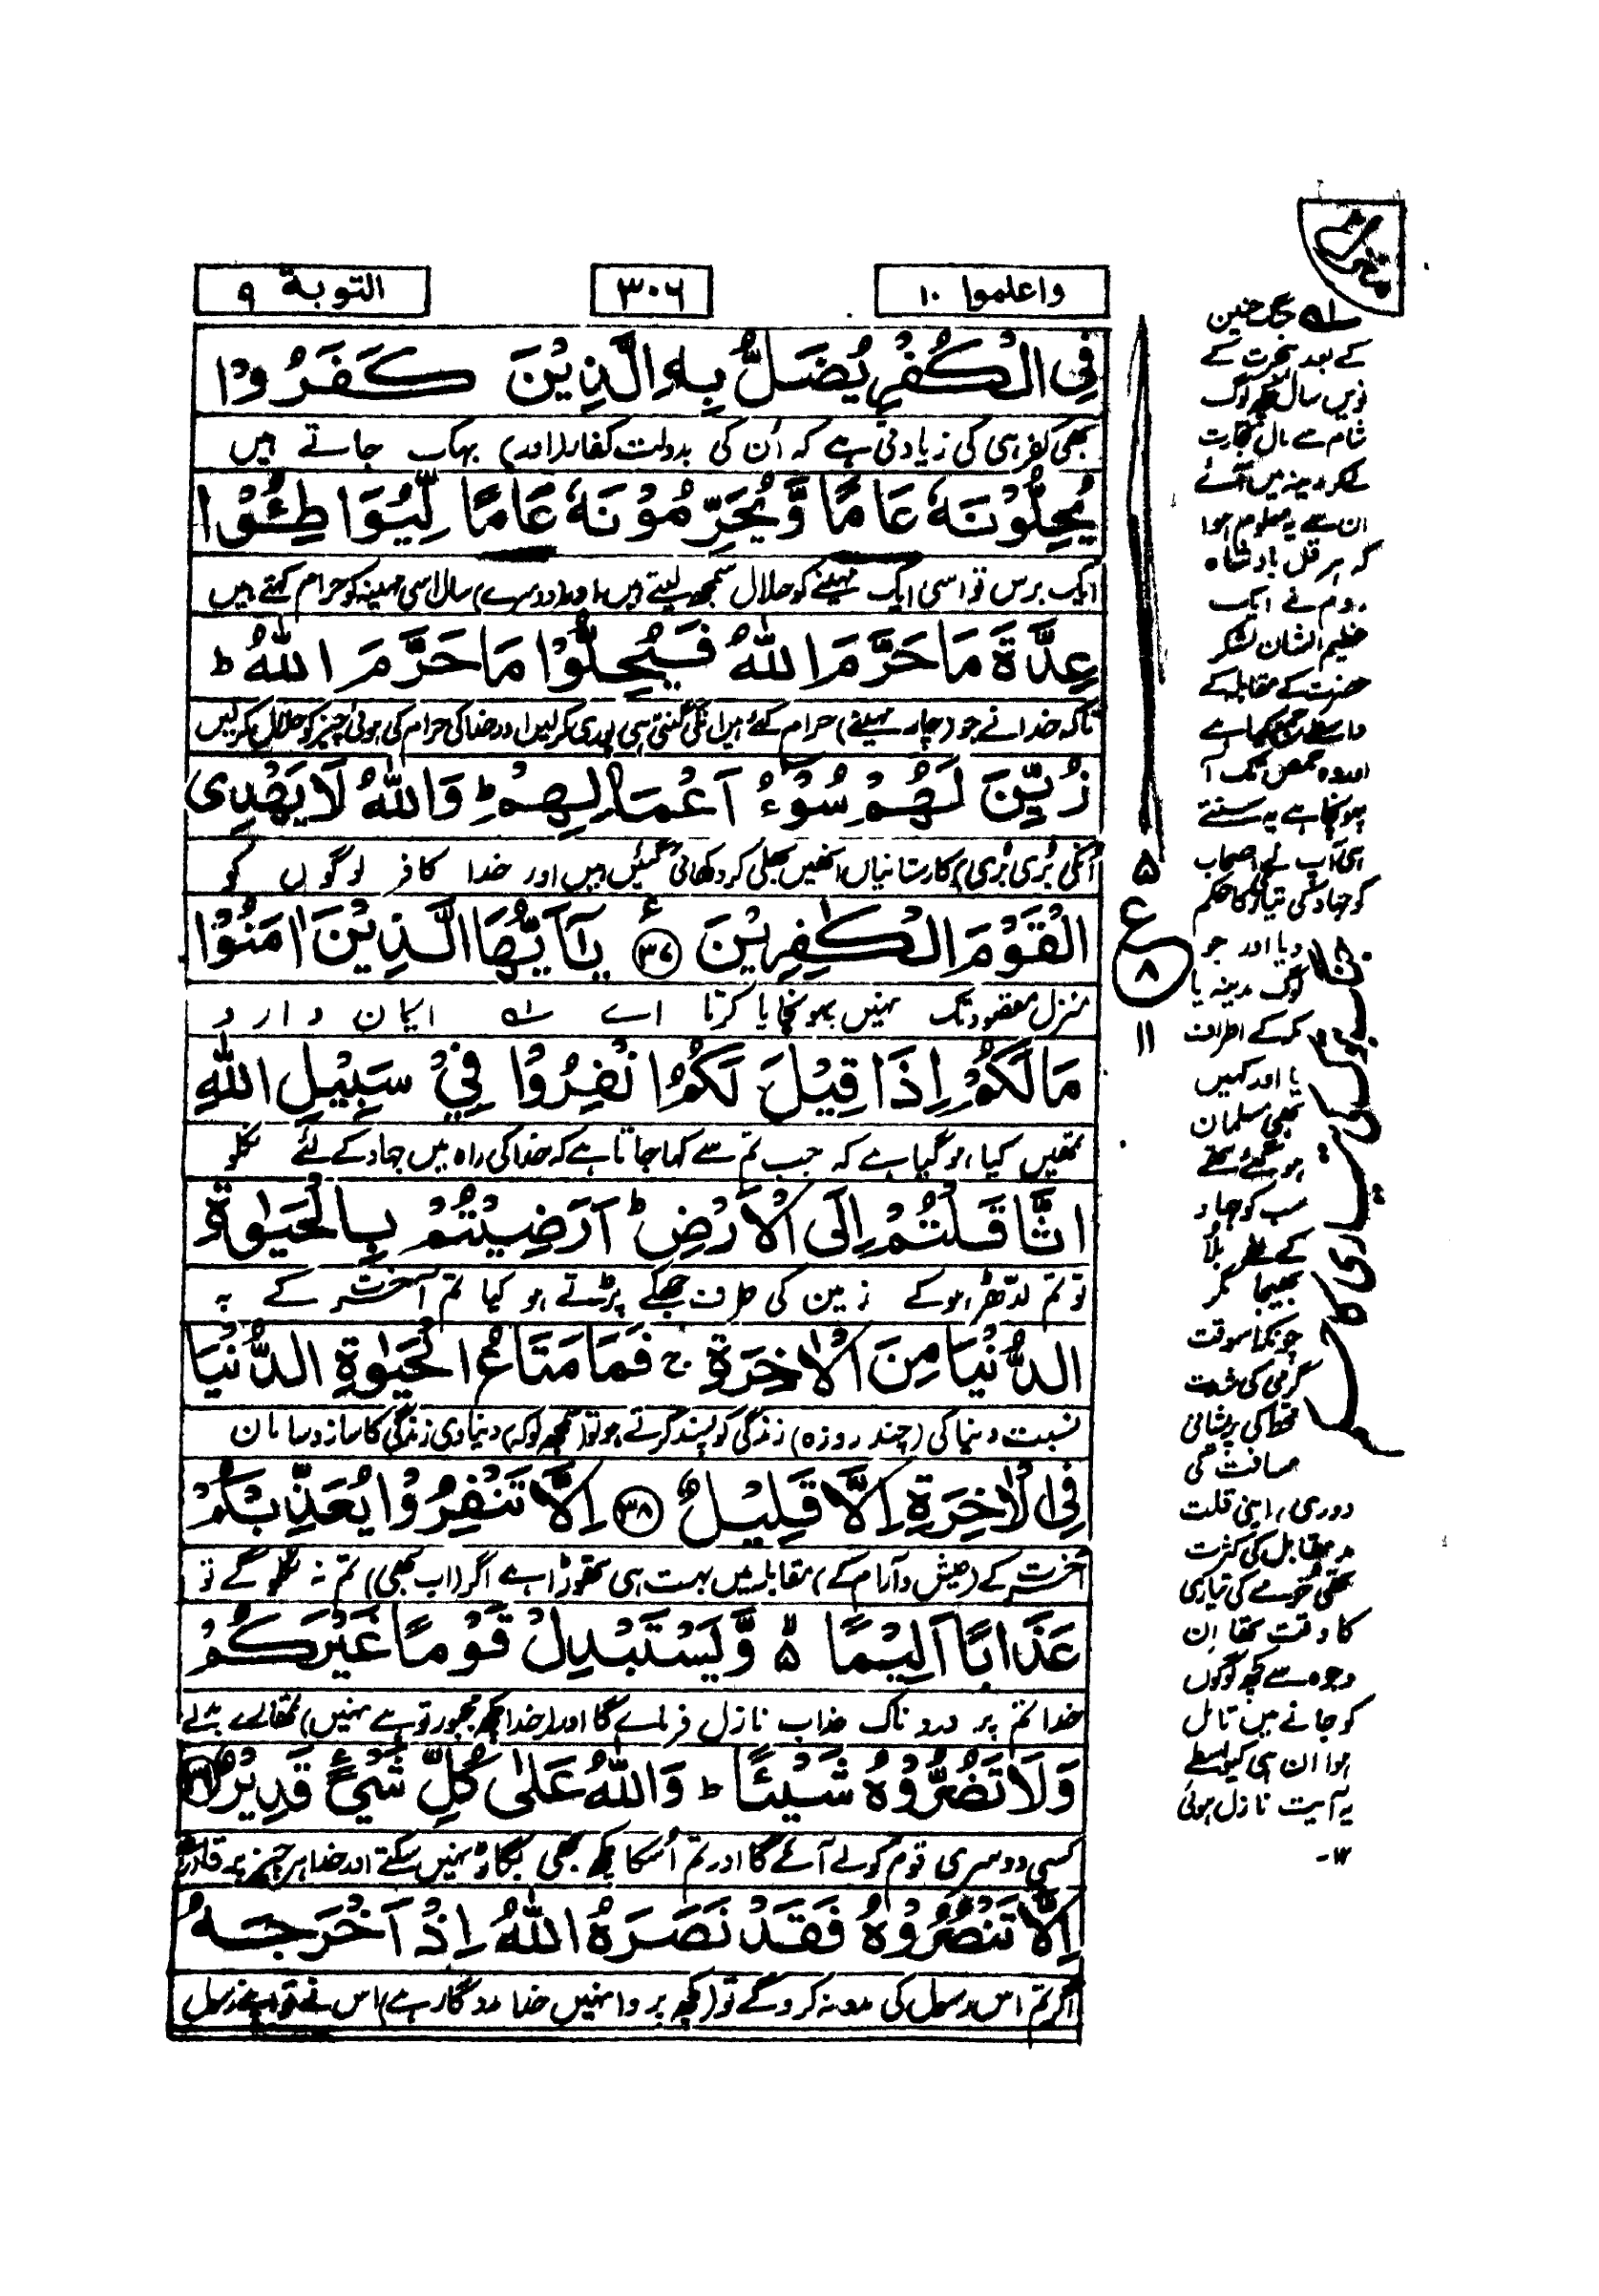 واعلموا ۱۰
۳۰۶
التوبة ۹
فِي الْكُفْرِ يُضَلُّ بِهِ الَّذِيْنَ كَفَرُوْا
بھی کفر ہی کی زیادتی ہے کہ اُن کی بدولت کفار (اور) بہک جاتے ہیں
يُحِلُّوْنَهٗ عَامًا وَّيُحَرِّمُوْنَهٗ عَامًا لِّيُوَاطِئُوْا
ایک برس تو اسی ایک مہینے کو حلال سمجھ لیتے ہیں اور (دوسرے) سال اسی مہینہ کو حرام کہتے ہیں
عِدَّةَ مَا حَرَّمَ اللّٰهُ فَيُحِلُّوْا مَا حَرَّمَ اللّٰهُ ؕ
تاکہ خدا نے جو (چار مہینے) حرام کئے ہیں انکی گنتی ہی پوری کر لیں اور خدا کی حرام کی ہوئی چیز کو حلال کر لیں
زُيِّنَ لَهُمْ سُوْٓءُ اَعْمَالِهِمْ ؕ وَاللّٰهُ لَا يَهْدِى
انکی بُری بُری کارستانیاں انھیں بھلی کر دکھائی گئیں ہیں اور خدا کافر لوگوں کو
الْقَوْمَ الْكٰفِرِيْنَ ﴿۳۷﴾ ع يٰٓاَيُّهَا الَّذِيْنَ اٰمَنُوْا
منزل مقصود تک نہیں پہونچایا کرتا اے ۱؎ ایمان دارو
مَا لَكُمْ اِذَا قِيْلَ لَكُمُ انْفِرُوْا فِيْ سَبِيْلِ اللّٰهِ
تمھیں کیا ہو گیا ہے کہ جب تم سے کہا جاتا ہے کہ خدا کی راہ میں جہاد کے لئے نکلو
اثَّاقَلْتُمْ اِلَى الْاَرْضِ ؕ اَرَضِيْتُمْ بِالْحَيٰوةِ
تو تم لدّھڑ ہو کے زمین کی طرف جھکے پڑتے ہو کیا تم آخرت کے بہ
الدُّنْيَا مِنَ الْاٰخِرَةِ ۚ فَمَا مَتَاعُ الْحَيٰوةِ الدُّنْيَا
نسبت دنیا کی (چند روزہ) زندگی کو پسند کرتے ہو تو (سمجھ لو کہ) دنیاوی زندگی کا ساز و سامان
فِي الْاٰخِرَةِ اِلَّا قَلِيْلٌ ﴿۳۸﴾ اِلَّا تَنْفِرُوْا يُعَذِّبْكُمْ
آخرت کے (عیش و آرام کے) مقابلہ میں بہت ہی تھوڑا ہے اگر (اب بھی) تم نہ نکلو گے تو
عَذَابًا اَلِيْمًا ۵ۙ وَّيَسْتَبْدِلْ قَوْمًا غَيْرَكُمْ
خدا تم پر دردناک عذاب نازل فرمائے گا اور (خدا کچھ مجبور تو ہے نہیں) تمھارے بدلے
وَلَا تَضُرُّوْهُ شَيْئًا ؕ وَاللّٰهُ عَلٰى كُلِّ شَيْءٍ قَدِيْرٌ ﴿۳۹﴾
کسی دوسری قوم کو لے آئے گا اور تم اُسکا کچھ بھی بگاڑ نہیں سکتے اور خدا ہر چیز پر قادر ہے
اِلَّا تَنْصُرُوْهُ فَقَدْ نَصَرَهُ اللّٰهُ اِذْ اَخْرَجَهُ
اگر تم اس رسول کی مدد نہ کروگے تو (کچھ پروا نہیں خدا مددگار ہے) اس نے تو اپنے رسول
۵
ع
۸
۱۱
۱؎ جنگ حنین
کے بعد ہجرت کے
نویں سال کچھ لوگ
شام سے مال تجارت
لیکر مدینہ میں آئے
ان سے یہ معلوم ہوا
کہ ہرقل بادشاہ
روم نے ایک
عظیم الشان لشکر
حضرت کے مقابلہ کے
واسطے جمع کیا ہے
اور وہ حمص تک آ
پہونچا ہے یہ سنتے
ہی آپ نے اصحاب
کو جہاد کی تیاری کا حکم
دیا اور جو
لوگ مدینہ یا
مکہ کے اطراف
یا اور کہیں
بھی مسلمان
ہو گئے تھے
سب کو جہاد
کے لئے بلا
بھیجا مگر
چونکہ اسوقت
گرمی کی شدت
قحط کی پریشانی
مسافت کی
دوری، اپنی قلت
مد مقابل کی کثرت
تھی خُرمے کی تیاری
کا وقت تھا اِن
وجوہ سے کچھ لوگوں
کو جانے میں تامل
ہوا ان ہی کیواسطے
یہ آیت نازل ہوئی
۱۲-
جنگ تبوک کی تیاری کا حکم